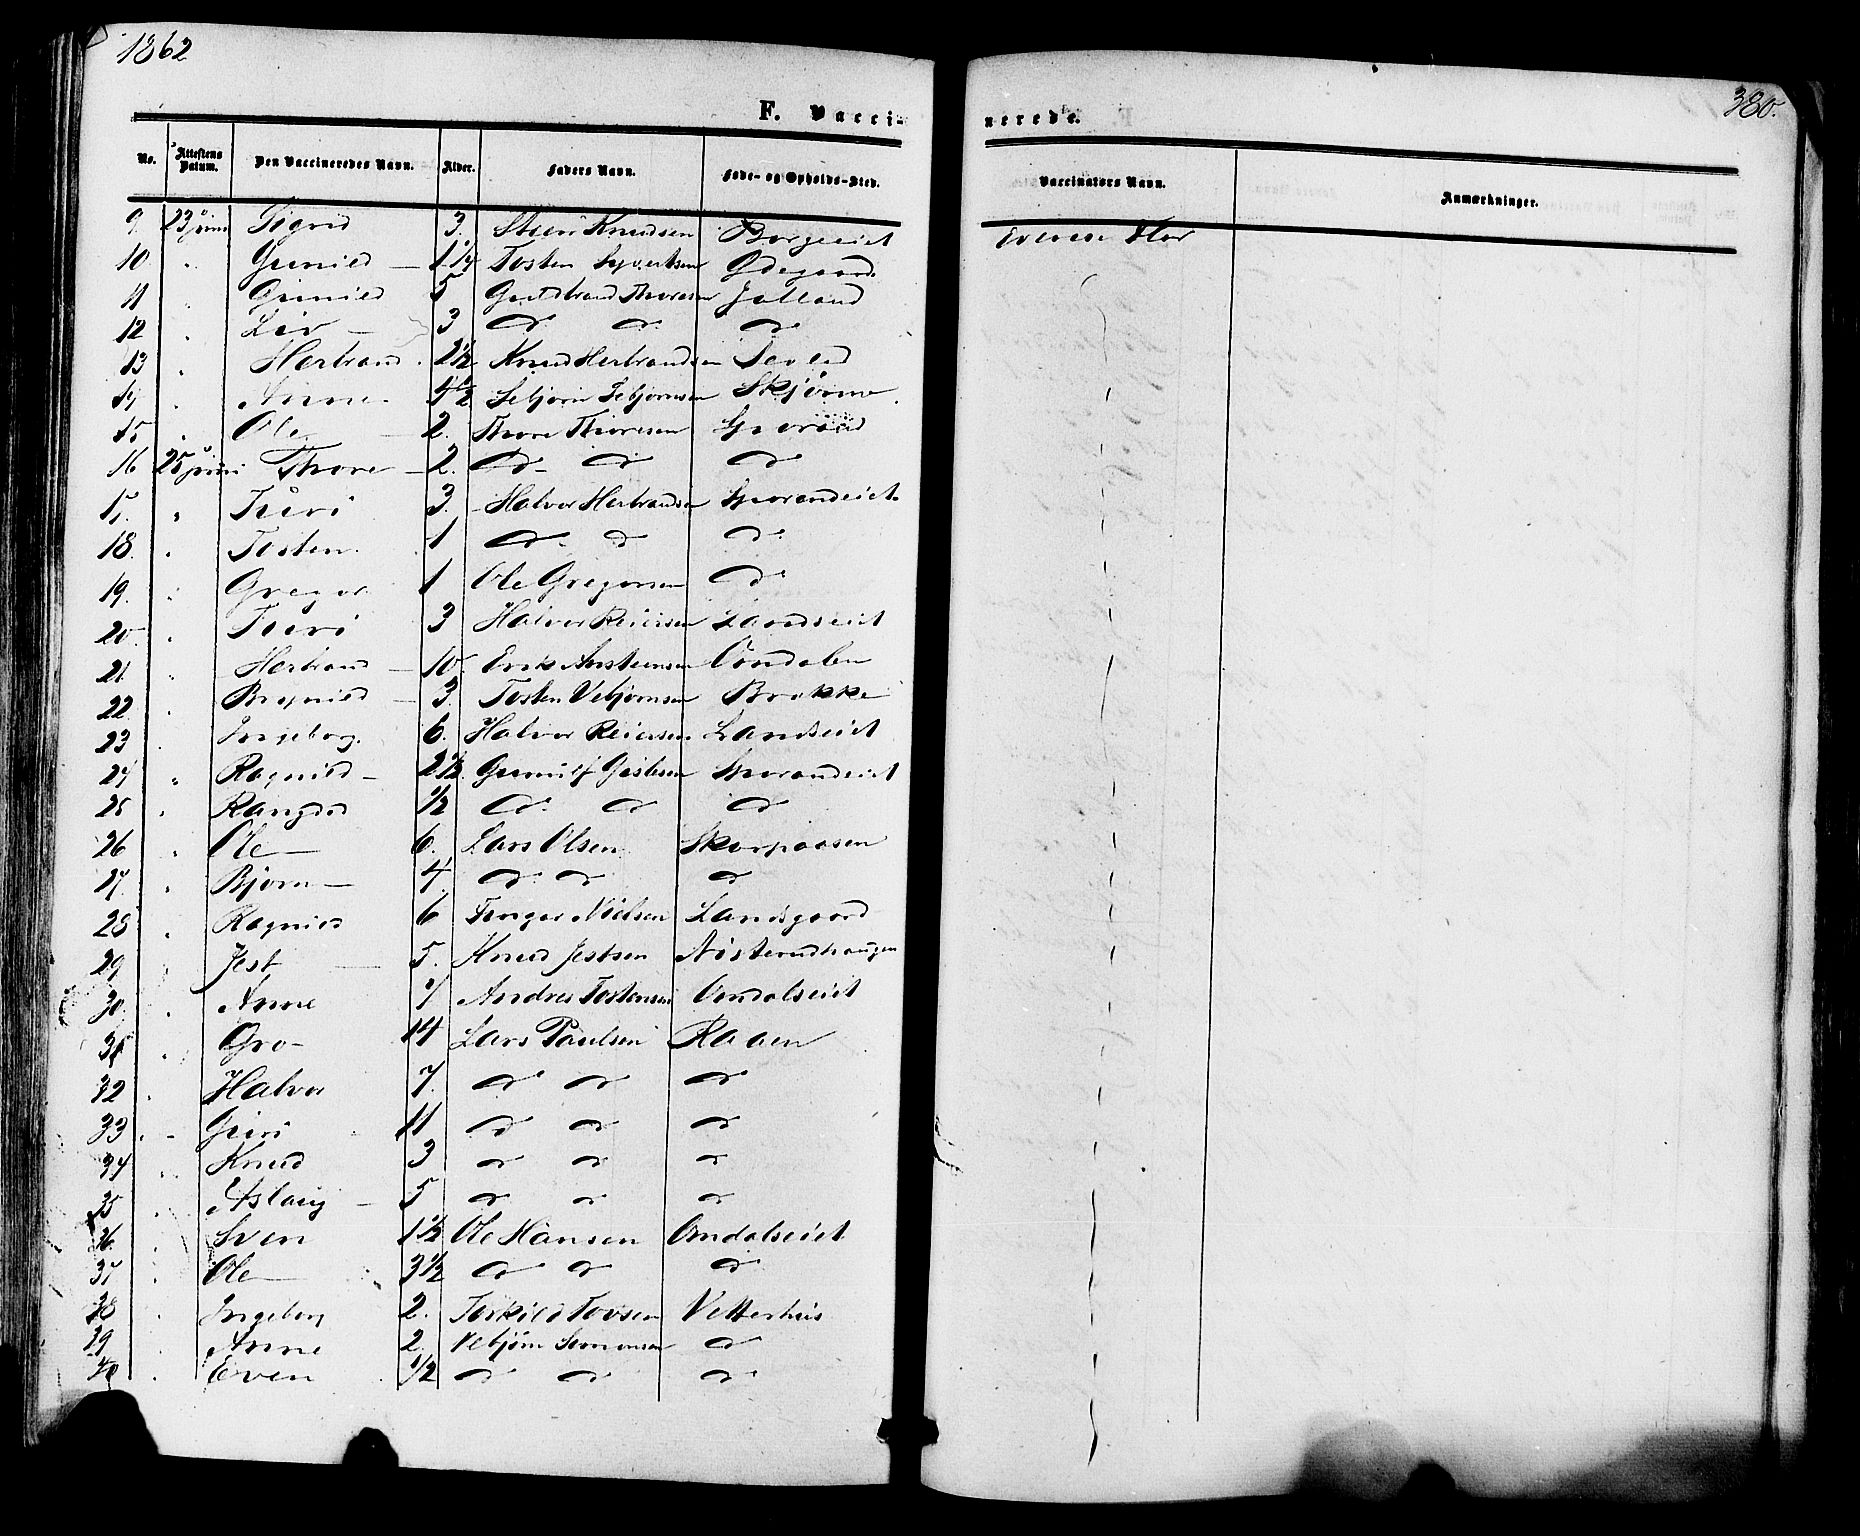 1862
380.
F. Vacci-
nerede.
No. Attestens Datum. Den Vaccineredes Navn. Alder. Faders Navn. Føde- og Opholds-Sted. Vaccinators Navn. Anmærkninger.
9. 23 juni Sigrid 3. Knudsen Borgeeiet
10 " Gunild 1 1/4 Tosten Syvertsen Ødegaard
11 " Gunild 5 Guldbrand Thoresen Jalland
12 " Liv 3 do do do
13 " Herbrand 2 1/2 Knud Herbrandsen
14 " Anne 4 1/2 Sebjørn Sebjørnsen
15 " Ole 2. Thore Thoresen
16 25 juni Thore 2. do do do
17. " Turi 3. Halvor Herbrandsen
18. " Tosten 1 do do do
19. " Gregor 1 Ole Gregorsen do
20. " Turi 3 Halvor Reiersen Landseiet
21. " Herbrand 10. Erik Ansteensen Omdalen
22 " Bragnild 3. Tosten Vebjørnsen Brokke
23 " Ingeborg 6. Halvor Reiersen Landseiet
24 " Ragnild 2 1/2. Gunulf Gjestsen
25 " Rangdid 1/2 do do do
26 " Ole 6. Lars Olsen Skorpaasen
27. " Bjørn 4. do do do
28 " Ragnild 6 Nielsen Landsgaard
29 " Jest 5. Knud Jestsen Nisterudhaugen
30. " Anne 7 Andres Tostensen Omdalseiet
31 " Gro 14 Lars Paulsen Raaen
32 " Halvor 7. do do do
33 " Guri 11 do do do
34 " Knud 3 do do do
35 " Aslaug 5 do do do
36. " Sven 1 1/2 Ole Hansen Omdalseiet
37 " Ole 3 1/2 do do do
38 " Ingeborg 2. Torkild Tovsen Vetterhus
39 " Anne 2. Vebjørn Simonsen do
40 " Even 1/2 do do do